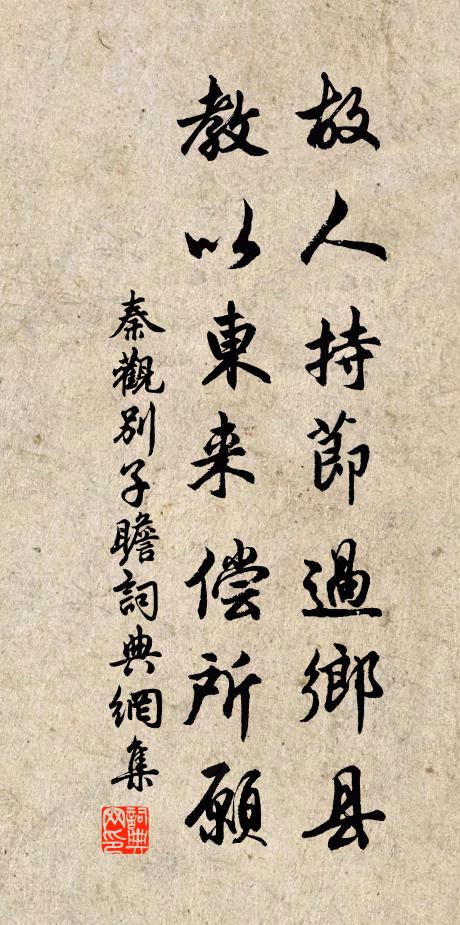 故人持節過鄉县
教以東来偿所願
秦觀別子瞻詞典網集
詞典网印